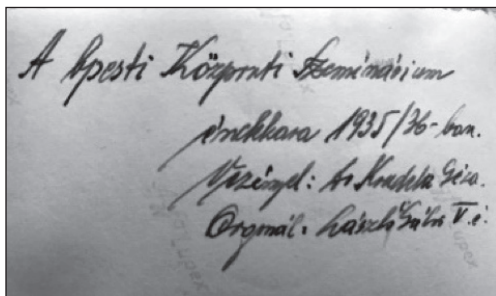 A bpesti Központi Szeminárium
énekkara 1935/36-ban.
Vezényel: dr Kudela Géza.
Orgonál: László Gábor V. é.
Lupex